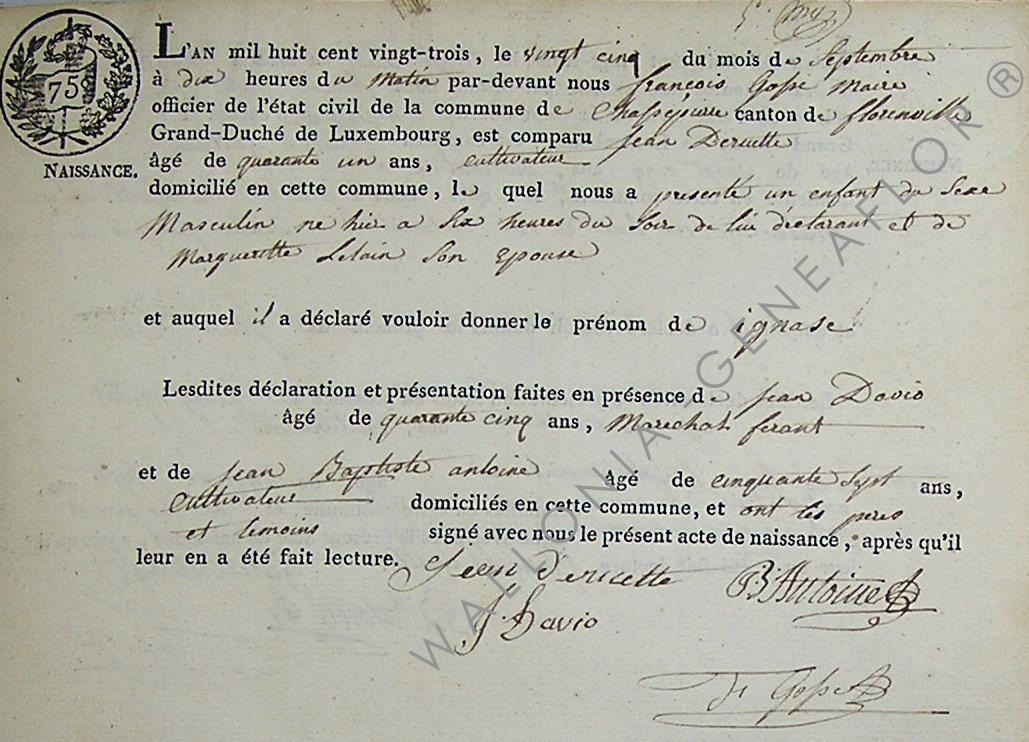 75
L'AN mil huit cent vingt-trois, le vingt cinq du mois de Septembre
à dix heures du Matin par-devant nous françois Gosse Maire
officier de l'état civil de la commune de Chassepierre canton de florenville
Grand-Duché de Luxembourg, est comparu jean Deruette
NAISSANCE.
âgé de quarante un ans, cultivateur
domicilié en cette commune, le quel nous a presenté un enfant du Sexe
Masculin ne hier a Six heures du Soir de lui déclarant et de
Margueritte Son Epouse
et auquel il a déclaré vouloir donner le prénom de ignase
Lesdites déclaration et présentation faites en présence de jean Davio
âgé de quarante cinq ans, Marechal ferant
et de jean Baptiste antoine âgé de cinquante Sept ans,
cultivateur domiciliés en cette commune, et ont les peres
et temoins signé avec nous le présent acte de naissance, après qu'il
leur en a été fait lecture. Jean Deruette B Antoine
J Davio
Gosse
WALLONIA GENEAFLOR ®